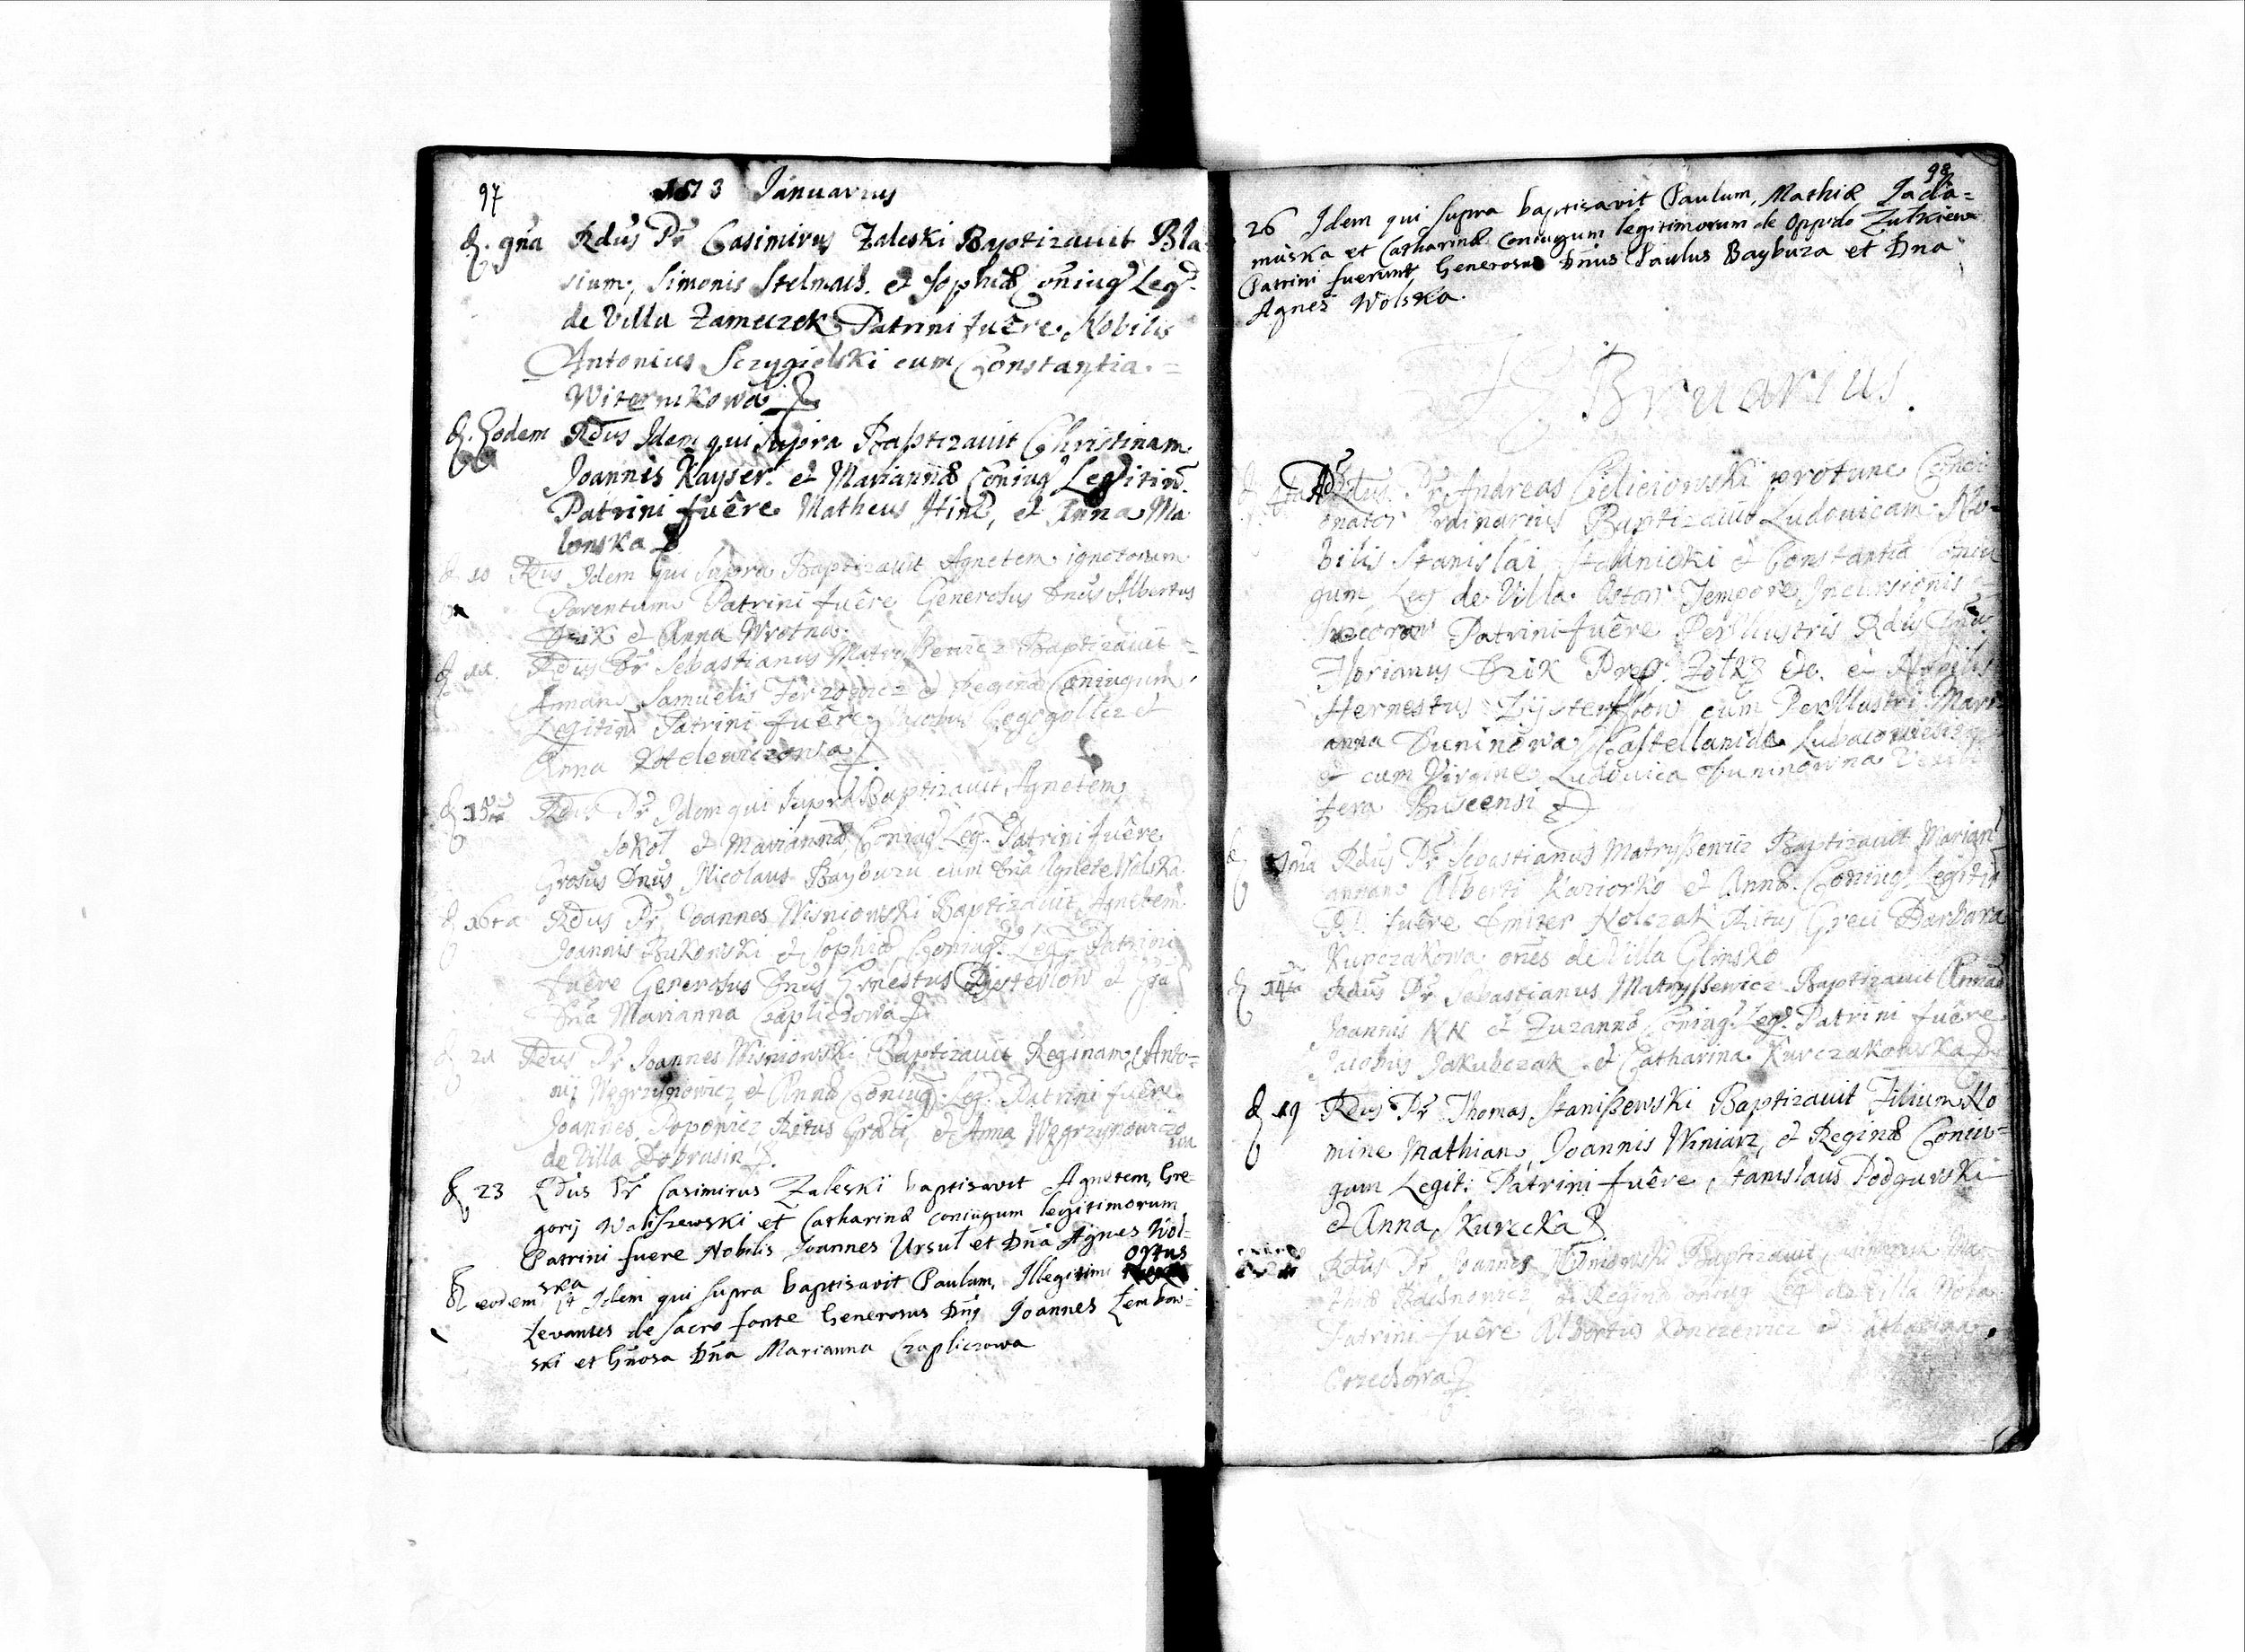 97
1673 Januarius
d. 9na Rdus Pr Casimirus Zaleski Baptizavit Bla-
sium, Simonis Stelmach. et Sophiæ Coniug Leg.
de Villa Zameczek Patrini fuêre. Nobilis
Antonius Sczygielski cum Constantia. =
Witernikowa
d. Eodem Rdus Idem qui Supra Baptizauit Christinam
Joannis Kayser. et Mariannæ Coniug Legitim.
Patrini fuêre Matheus Hinc, et Anna Ma
lonska
d 10 Rdus Idem qui Supra Baptizauit Agnetem ignotorum
Parentum Patrini fuêre Generosus Dnus Albertus
et Anna Wrotna.
d 11. Rdus Pr Sebastianus Matryßewicz Baptizauit =
Annam Samuelis et Reginæ Coniugum
Legitim Patrini fuêre et
Anna Kotelewiczowa
d 15 Rdus Pr Idem qui Supra Baptizauit Agnetem
Sokol et Mariannæ Coniug Leg. Patrini fuêre
Grosus Dnus Nicolaus Baybuza cum Dna Agnete Wolska
d 16ta Rdus Pr Joannes Wisniowski Baptizauit Agnetem
Joannis Bukowski et Sophiæ Coniug. Leg. Patrini
fuêre Generosus Dnus Ernestus et Gsa
Dna Marianna Czapliczowa
d 21 Rdus Pr Joannes Wisniowski Baptizauit Reginam Anto=
nij Węgrzynowicz et Annæ Coniug. Leg. Patrini fuêre
Joannes Popowicz Ritus Græci, et Anna Węgrzynowiczo
wa
de Villa Dobrusin
d 23 Rdus Pr Casimirus Zaleski baptisavit Agnetem, Gre-
gorij Waliszewski et Catharinæ coniugum legitimorum
Patrini fuere Nobilis Joannes Ursul et Dna Agnes Wol-
ska
ortus
d eodem Idem qui supra baptisavit Paulum, Illegitimi
Levantes de sacro fonte Generosus Dnus Joannes Zembow-
ski et Gnosa Dna Marianna Czapliczowa
98
26 Idem qui supra baptisavit Paulum, Mathiæ Jada=
muska et Catharinæ coniugum legitimorum de Oppido Zułkiew
Patrini fuerunt Generosus Dnus Paulus Baybuza et Dna
Agnes Wolska.
Februarius.
Rdus. Pr. Andreas protunc Conci
onator Ordinarius Baptizauit Ludouicam No=
bilis Stanislai et Constantiæ Coniu
gum Leg de Villa Tempore Incursionis
Patrini fuêre Perillustris Rdus Dnus
Florianus et Nobilis
Hernestus cum Perillustri Mari
anna Duninowa Castellanide
et cum Virgine Ludouica Duninowna
fera Buscensi
Rdus Pr Sebastianus Matryßewicz Baptizauit Marian
annam Alberti Kaziorko et Annæ. Coniug. Legitim
fuêre Dmiter Ritus Greci Barbara
Kupczakowa ones de Villa Glinsko
d 14ta Rdus Pr Sebastianus Matryßewicz Baptizauit Annam
Joannis NN et Zuzannæ Coniug. Leg. Patrini fuêre
Jacobus Jakubczak et Catharina Kurczakowska
d 19 Rdus Pr Thomas Stanißewski Baptizauit Filium No
mine Mathiam, Joannis Winiarz, et Reginæ Coniu=
gum Legit: Patrini fuêre, Stanislaus Podgurski
et Anna, Skurecka
Rdus Pr Joannes Wisniowski Baptizauit
et Reginæ Coniug Leg de Villa
Patrini fuêre Albertus Konczewicz et Catharina